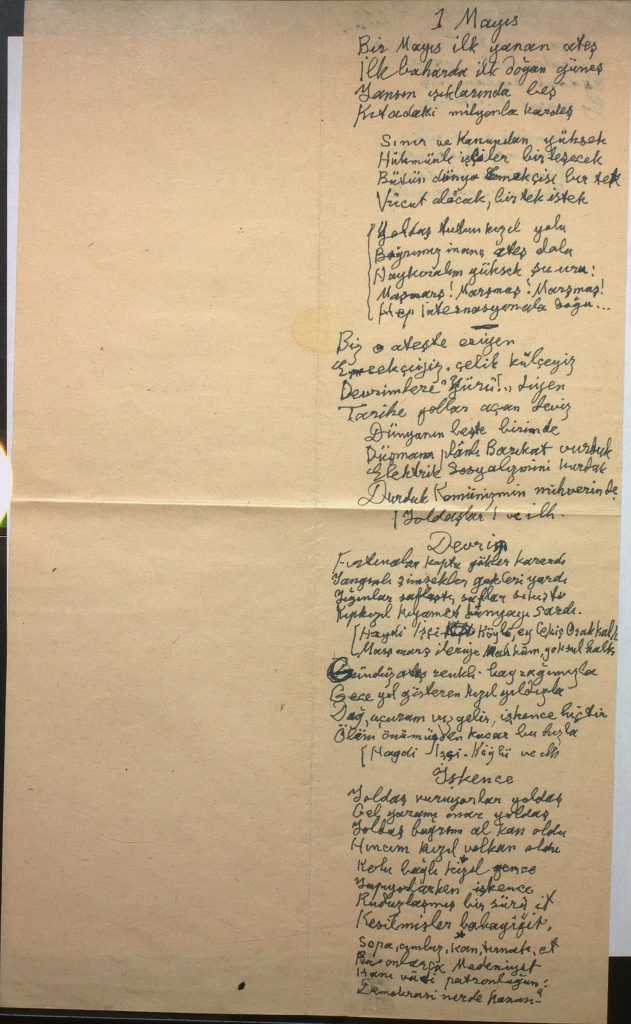 1 Mayıs
Bir Mayıs ilk yanan ateş
İlk baharda ilk doğan güneş
Yansın ışıklarında beş
Kıtadaki milyonla kardeş
Sınır ve Kanundan yüksek
Hükmünle işçiler birleşecek
Bütün dünya Emekçisi bir tek
Vücut olacak, bir tek istek
Yoldaş tutun kızıl yolu
Bağrımız inanç ateş dolu
Haykıralım yüksek şuuru:
Marşmarş! Marşmaş! Marşmaş!
Hep Internasyonala doğru...
Biz ateşte eriyen
Emekçiyiz, çelik külçeyiz
Devrimlere "Yürü!" diyen
Tarihe yollar açan deviz
Dünyanın beşte birinde
Düşmana plânlı Barikat vurduk
Elektrik Sosyalizmini kurduk
Durduk Komünizmin mihverinde
Yoldaşlar! ve ilh.
Devrim
Fırtınalar koptu gökler karardı
Yangınlı şimşekler gökleri yardı
Yığınlar saflaştı, saflar sıkıştı
Kıpkızıl kıyamet dünyayı sardı.
Haydi İşçi Köylü, ey Çekiç Orak kalk
Marş marş ileriye Mahkûm, yoksul halk
Gündüz ateş renkli bayrağımızla
Gece yol gösteren kızıl yıldızla
Dağ, uçurum vız gelir, işkence hiçtir
Ölüm önümüzden kaçar bu hızla
Haydi İşçi - Köylü ve ilh
İşkence
Yoldaş vuruyorlar yoldaş
Gel yaramı onar yoldaş
Yoldaş bağrım al kan oldu
Hıncım kızıl volkan oldu
Kolu bağlı kızıl gence
Yapıyorlarken işkence
Kuduzlaşmış bir sürü it
Kesilmişler babayiğit.
Sopa, cımbız, kan, tırnak, et
Bu onlarca Medeniyet
Hani patronluğun:
Demokrasi nerde kanun?